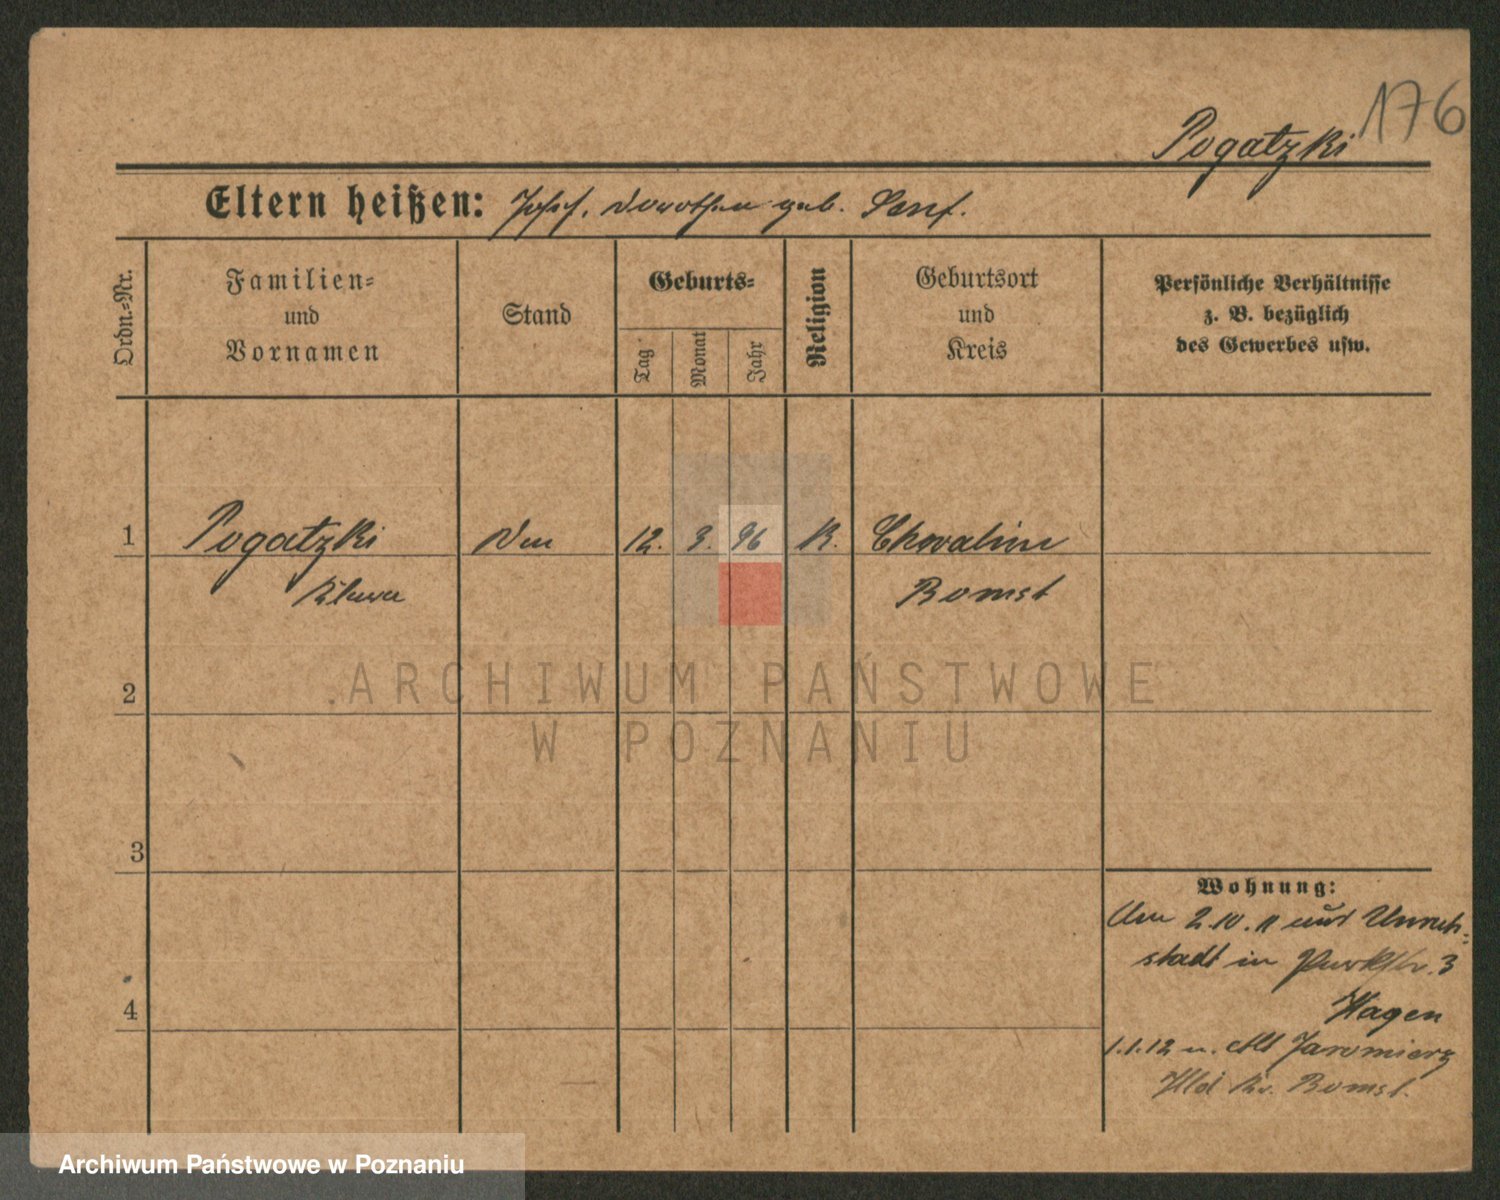 176
Pogatzki
Eltern heißen: Josef, Dorothea geb. Senf.
Ordn.-Nr.
Familien-
und
Vornamen
Stand
Geburts-
Tag
Monat
Jahr
Religion
Geburtsort
und
Kreis
Persönliche Verhältnisse
z. B. bezüglich
des Gewerbes usw.
1 Pogatzki 12. 3. 96 K. Chwalim
Klara Bomst
2
ARCHIWUM PAŃSTWOWE
W POZNANIU
3
Wohnung:
Am 2.10.11 aus Unruh-
stadt in Parkstr. 3
Hagen
1.1.12 n. Alt Jaromierz
Kr. Bomst.
4
Archiwum Państwowe w Poznaniu